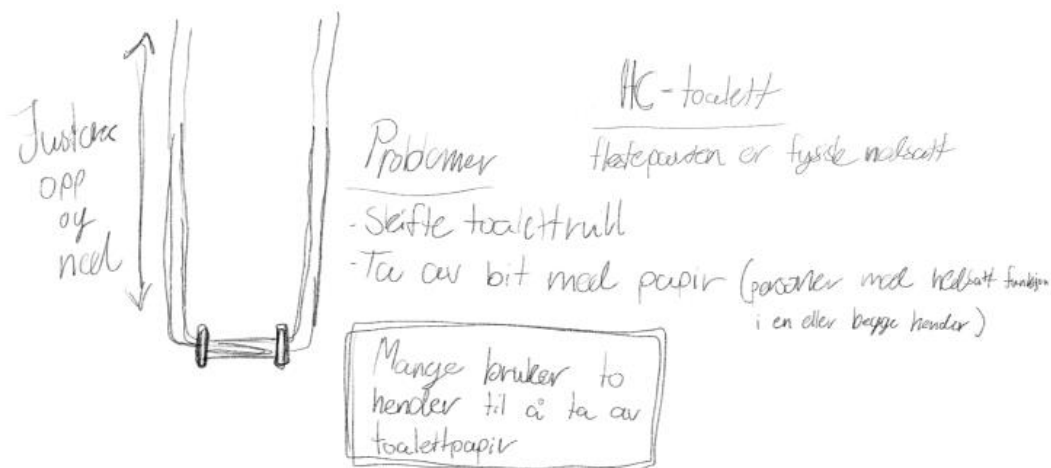 Justere
opp
og
ned
HC-toalett
flesteparten er fysisk nedsatt
Problemer
- Skifte toalettrull
- Ta av bit med papir (personer med nedsatt funksjon
i en eller begge hender)
Mange bruker to
hender til å ta av
toalettpapir